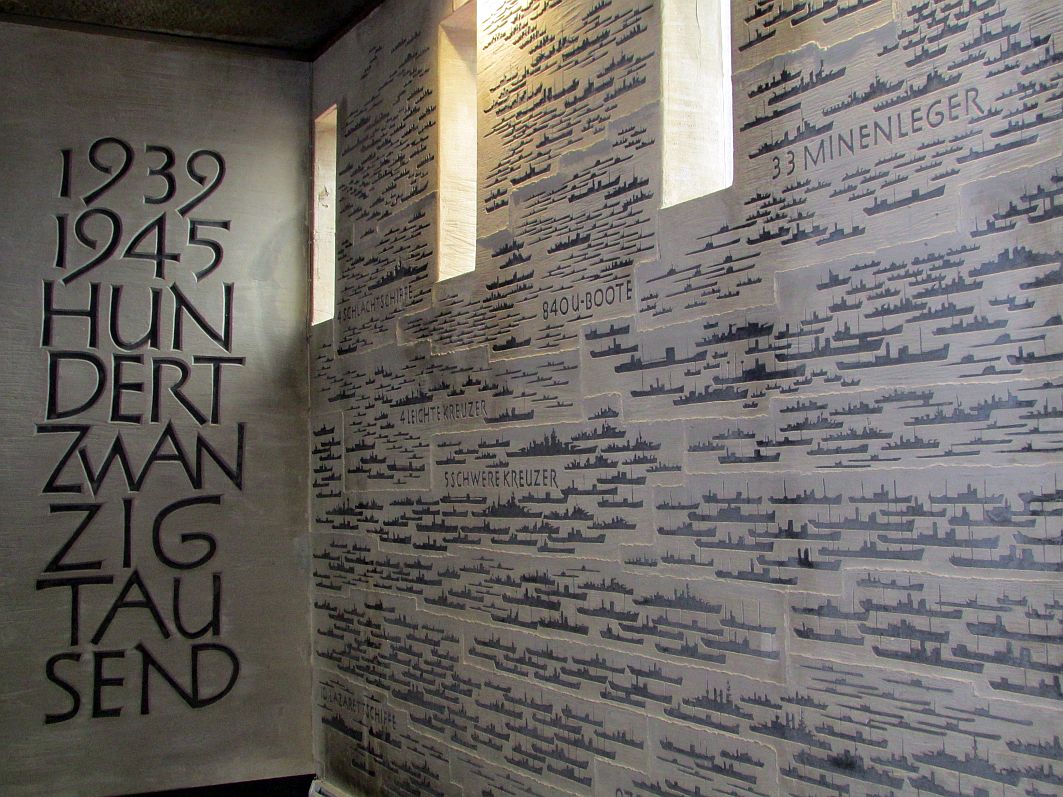 1939
1945
HUN
DERT
ZWAN
ZIG
TAU
SEND
33 MINENLEGER
4 SCHLACHTSCHIFFE
840 U-BOOTE
4 LEICHTE KREUZER
5 SCHWERE KREUZER
LAZARETTSCHIFFE